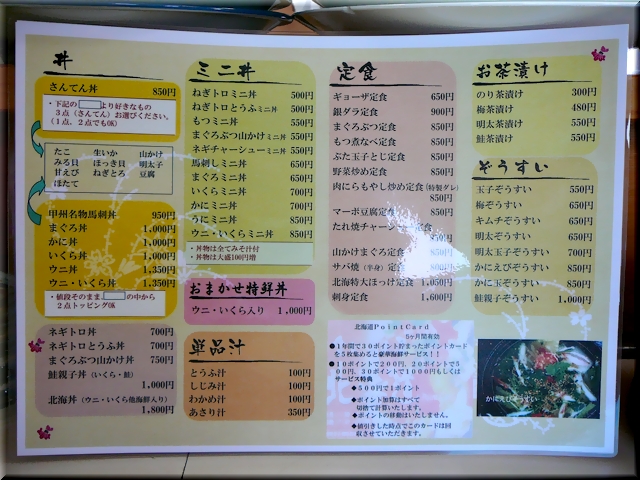 丼
さんてん丼 850円
・下記の より好きなもの
３点（さんてん）お選びください。
（１点、２点でもOK）
たこ 生いか 山かけ
みる貝 ほっき貝 明太子
甘えび ねぎとろ 豆腐
ほたて
甲州名物馬刺丼 950円
まぐろ丼 1,000円
かに丼 1,000円
いくら丼 1,000円
ウニ丼 1,350円
ウニ・いくら丼 1,350円
・値段そのまま の中から
２点トッピングOK
ネギトロ丼 700円
ネギトロとうふ丼 700円
まぐろぶつ山かけ丼 750円
鮭親子丼（いくら・鮭）
1,000円
北海丼（ウニ・いくら他海鮮入り）
1,800円
ミニ丼
ねぎトロミニ丼 500円
ねぎトロとうふミニ丼 500円
もつミニ丼 550円
まぐろぶつ山かけミニ丼 550円
ネギチャーシューミニ丼 550円
馬刺しミニ丼 650円
まぐろミニ丼 650円
いくらミニ丼 700円
かにミニ丼 700円
うにミニ丼 850円
ウニ・いくらミニ丼 850円
・丼物は全てみそ汁付
・丼物は大盛100円増
おまかせ特鮮丼
ウニ・いくら入り 1,000円
単品汁
とうふ汁 100円
しじみ汁 100円
わかめ汁 100円
あさり汁 350円
定食
ギョーザ定食 650円
銀ダラ定食 900円
まぐろぶつ定食 850円
もつ煮なべ定食 850円
ぶた玉子とじ定食 850円
野菜炒め定食 850円
肉にらもやし炒め定食（特製ダレ）
850円
マーボ豆腐定食 850円
たれ焼チャーシュー定食
山かけまぐろ定食 850円
サバ焼（半身）定食
北海特大ほっけ定食 1,050円
刺身定食 1,600円
北海道ＰｏｉｎｔＣａｒｄ
６ヶ月間有効
●１年間で３０ポイント貯まったポイントカード
を５枚集めると豪華海鮮サービス！！
●１０ポイントで２００円、２０ポイントで５
００円、３０ポイントで１０００円もしくは
サービス特典
◆５００円で１ポイント
◆ポイント加算はすべて
切捨て計算いたします。
◆ポイントの移動はいたしません。
◆値引きした時点でこのカードは回
収させていただきます。
お茶漬け
のり茶漬け 300円
梅茶漬け 480円
明太茶漬け 550円
鮭茶漬け 550円
ぞうすい
玉子ぞうすい 550円
梅ぞうすい 650円
キムチぞうすい 650円
明太ぞうすい 650円
明太玉子ぞうすい 700円
かにえびぞうすい 850円
かに玉ぞうすい 850円
鮭親子ぞうすい 1,000円
かにえびぞうすい